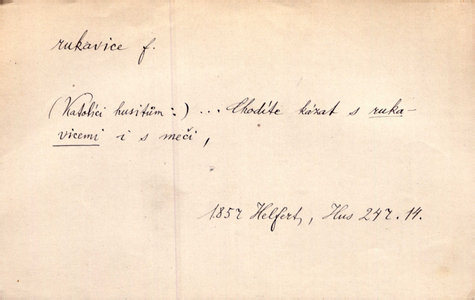 rukavice f.
(Katolíci husitům:) ... Chodíte kázat s ruka-
vicemi i s meči,
1857 Helfert, Hus 247.14.